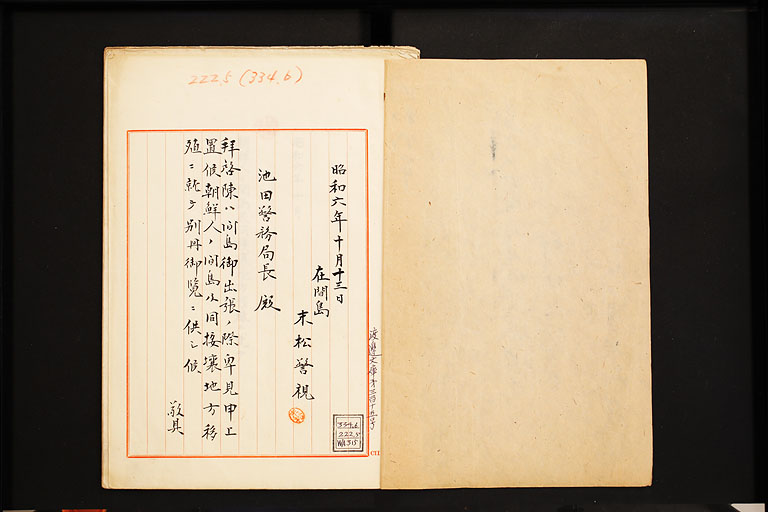 222.5 (334.6)
昭和六年十月十三日
在間島
末松警視
池田警務局長殿
拝啓陳ハ間島御出張ノ際卑見申上
置候朝鮮人ノ間島及同接壌地方移
殖ニ就テ別冊御覧ニ供シ候
敬具
渡邊文庫第三百十五号
334.6
222.5
WA315